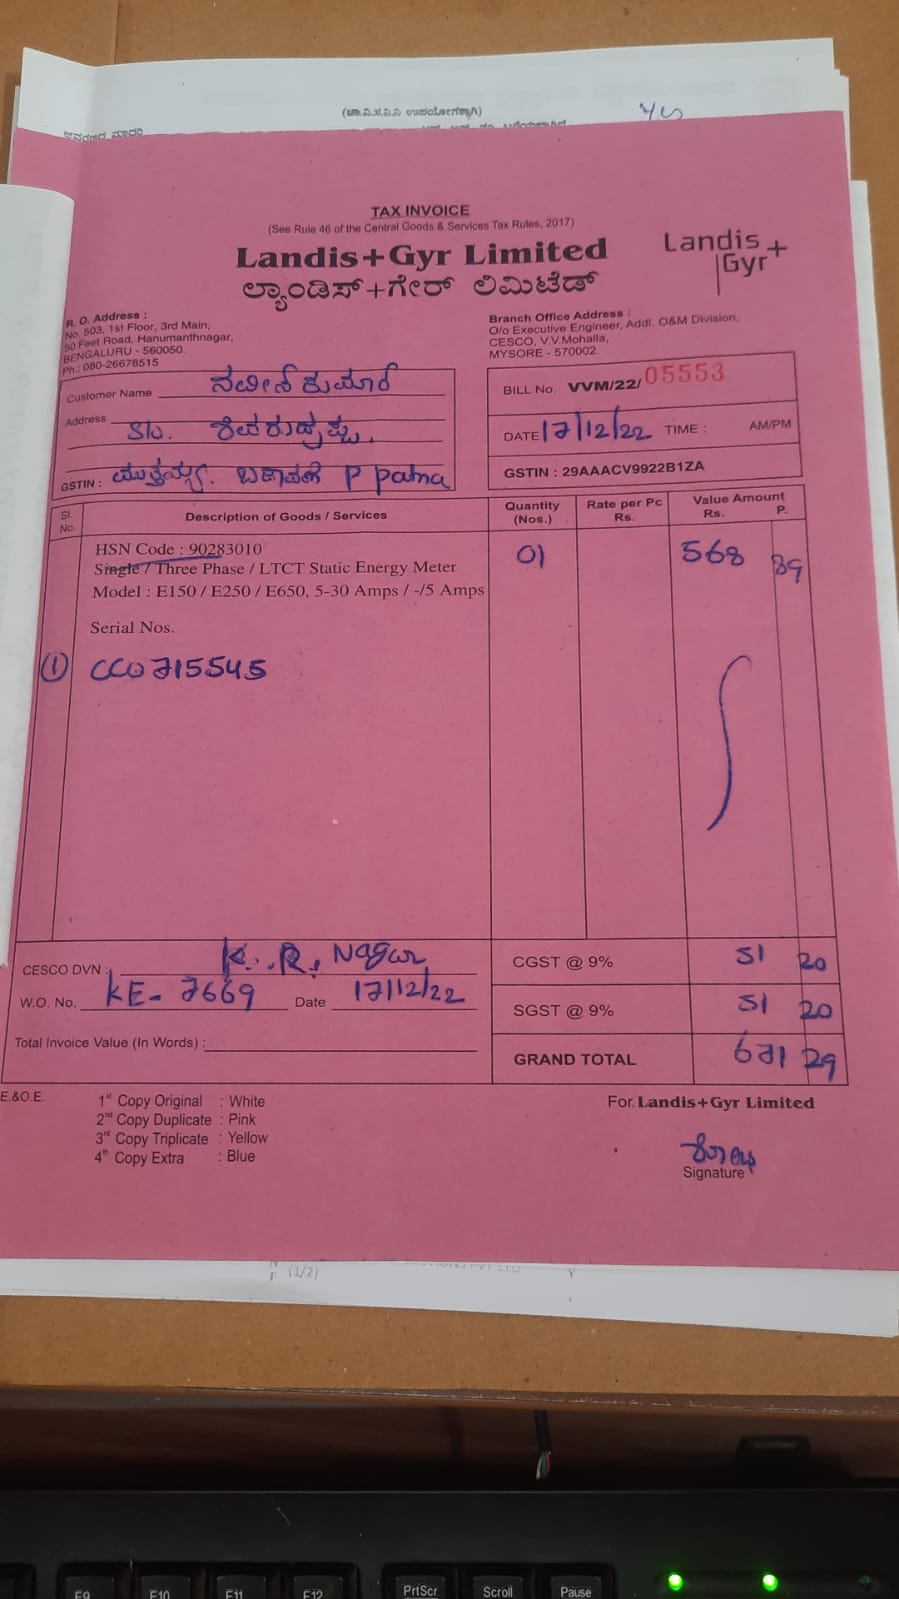 (ಚಾ.ವಿ.ಸ.ನಿ.ನಿ ಉಪಯೋಗಕ್ಕಾಗಿ)
TAX INVOICE
(See Rule 46 of the Central Goods & Services Tax Rules, 2017)
Landis+Gyr Limited
ಲ್ಯಾಂಡಿಸ್+ಗೇರ್ ಲಿಮಿಟೆಡ್
Landis+
Gyr
R. O. Address :
No. 503, 1st Floor, 3rd Main,
50 Feet Road, Hanumanthnagar,
BENGALURU - 560050.
Ph.: 080-26678515
Branch Office Address :
O/o Executive Engineer, Addl. O&M Division,
CESCO, V.V.Mohalla,
MYSORE - 570002.
Customer Name ನವೀನ್ ಕುಮಾರ್
Address
S/o. ಶಿವರುದ್ರಪ್ಪ.
GSTIN : P Patna
BILL No. VVM/22/ 05553
DATE 17/12/22 TIME : AM/PM
GSTIN : 29AAACV9922B1ZA
Sl. No. Description of Goods / Services Quantity (Nos.) Rate per Pc Rs. Value Amount Rs. P.
HSN Code : 90283010 01 568 89
Single / Three Phase / LTCT Static Energy Meter
Model : E150 / E250 / E650, 5-30 Amps / -/5 Amps
Serial Nos.
① CCO715545
CESCO DVN : K. R. Nagar
W.O. No. KE-7669 Date 17/12/22
Total Invoice Value (In Words) :
CGST @ 9% 51 20
SGST @ 9% 51 20
GRAND TOTAL 671 29
E.&O.E.
1st Copy Original : White
2nd Copy Duplicate : Pink
3rd Copy Triplicate : Yellow
4th Copy Extra : Blue
For Landis+Gyr Limited
Signature
(1/2)
F9 F10 F11 F12 PrtScr Scroll Pause